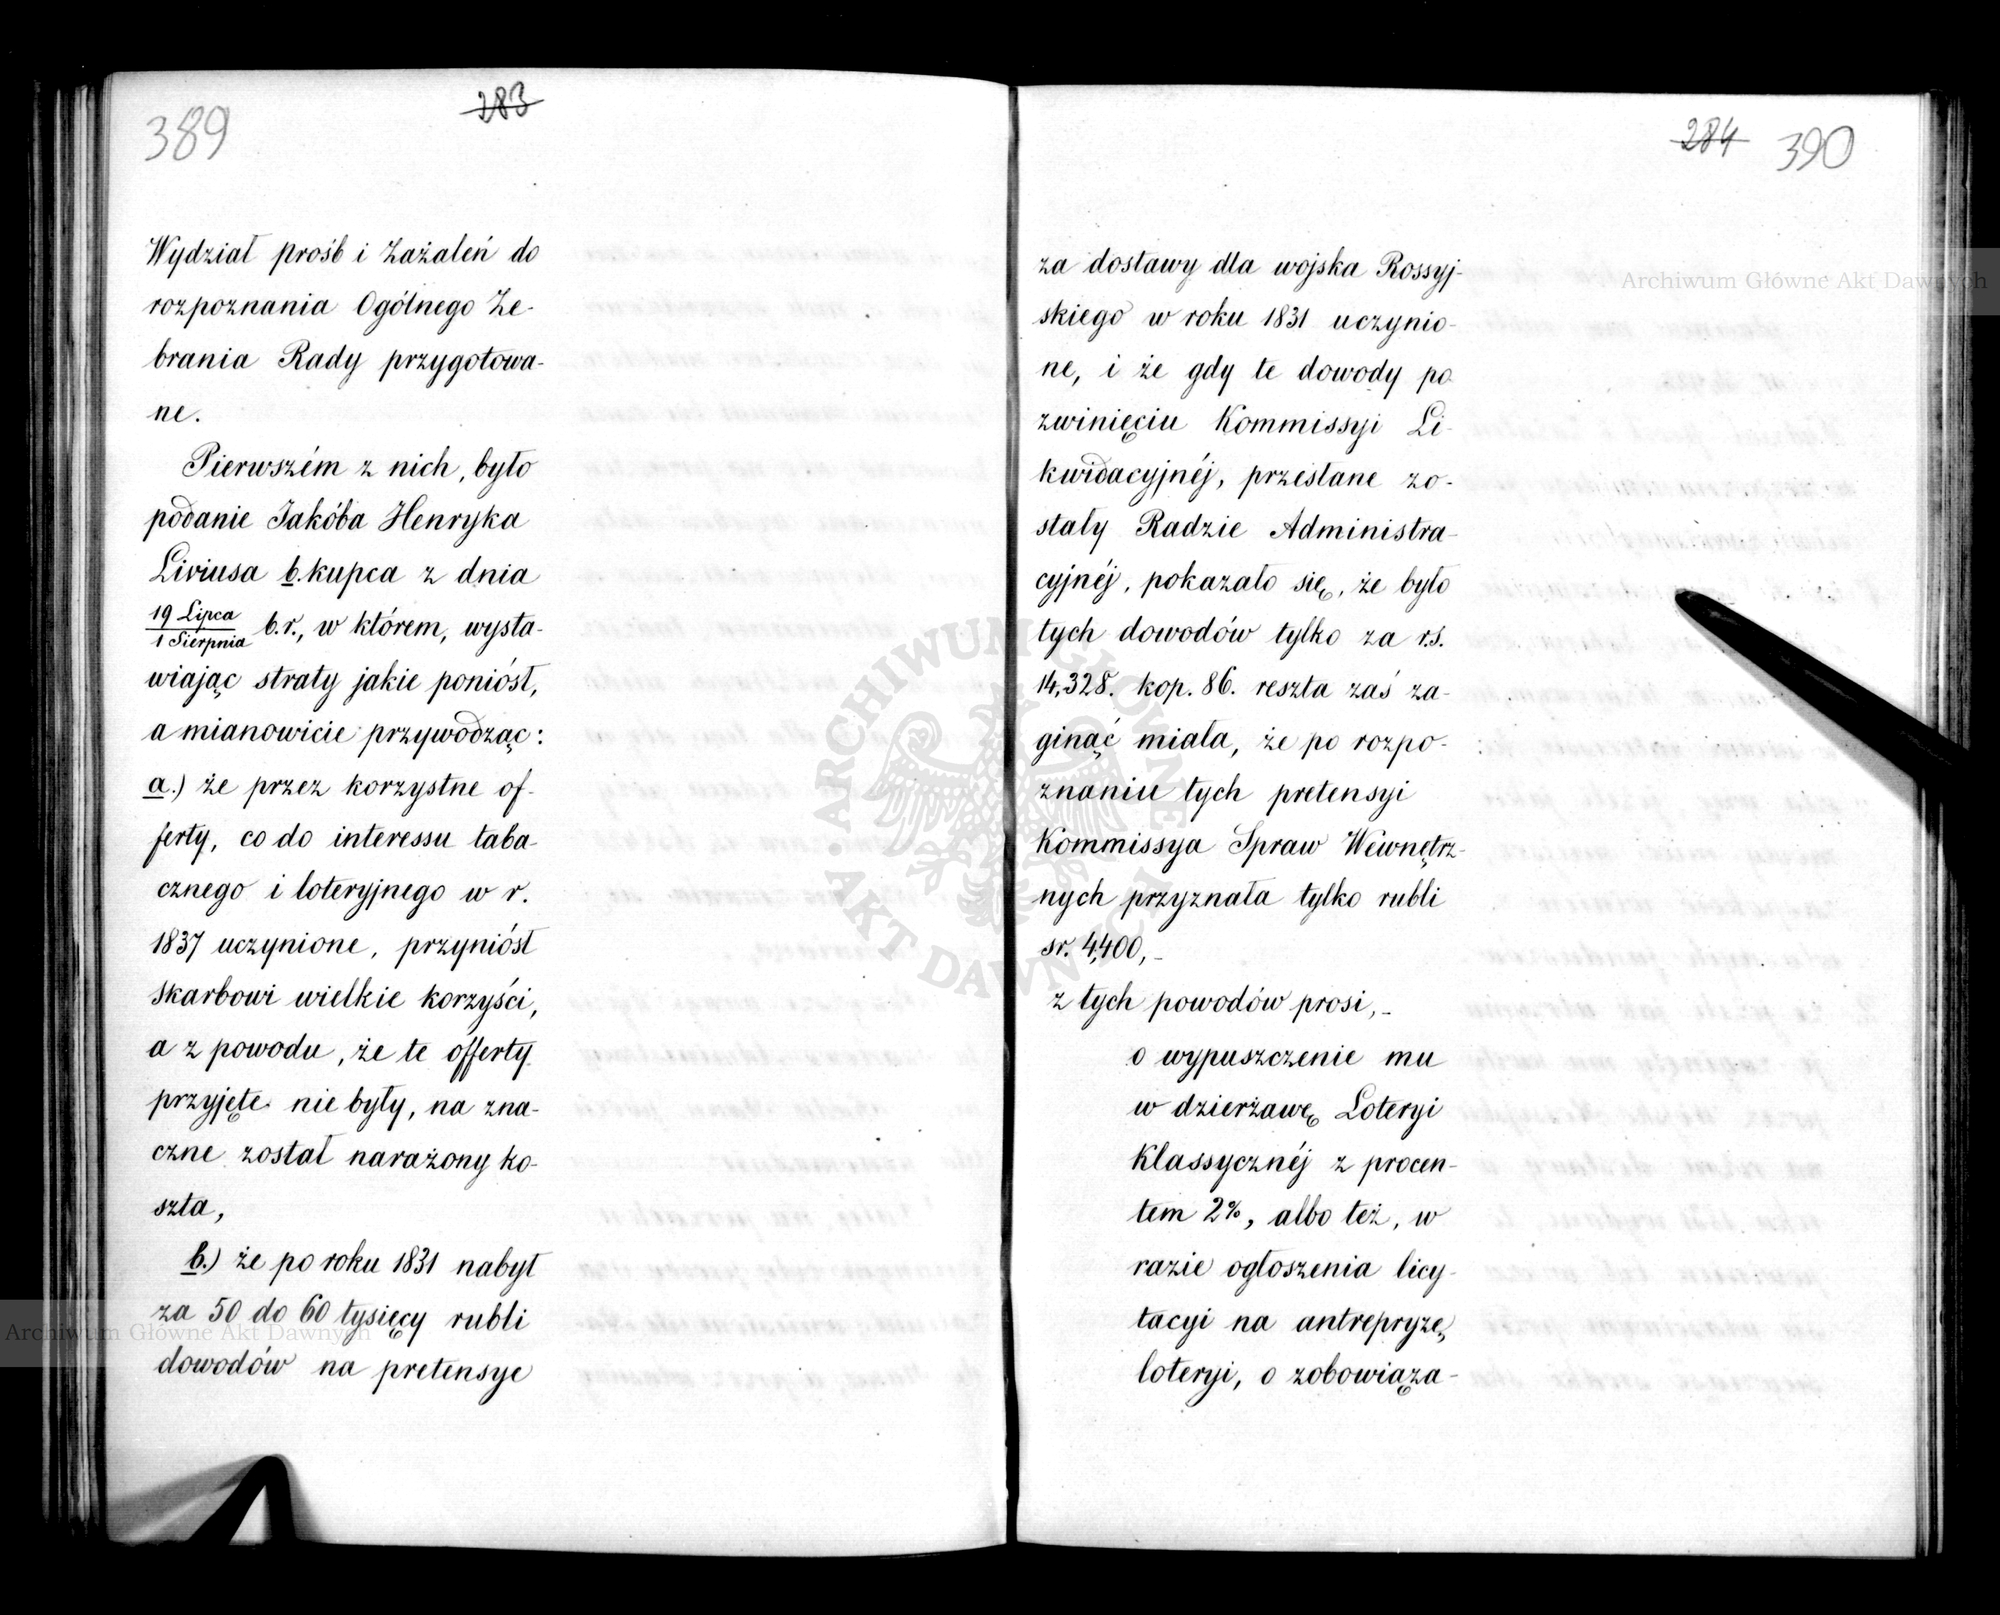 389
283
Wydział prośb i Zażaleń do
rozpoznania Ogólnego Ze-
brania Rady przygotowa-
ne.
Pierwszém z nich, było
podanie Jakóba Henryka
Liviusa b. kupca z dnia
19 Lipca
1 Sierpnia b.r., w którem, wysta-
wiając straty jakie poniósł,
a mianowicie przywodząc:
a.) że przez korzystne of-
ferty, co do interessu taba-
cznego i loteryjnego w r.
1837 uczynione, przyniósł
skarbowi wielkie korzyści,
a z powodu, że te offerty
przyjęte nie były, na zna-
czne został narażony ko-
szta,
b.) że po roku 1831 nabył
za 50 do 60 tysięcy rubli
dowodów na pretensye
284 390
za dostawy dla wojska Rossyj-
skiego w roku 1831 uczynio-
ne, i że gdy te dowody po
zwinięciu Kommissyi Li-
kwidacyjnéj, przesłane zo-
stały Radzie Administra-
cyjnéj, pokazało się, że było
tych dowodów tylko za r.s.
14,328. kop. 86. reszta zaś za-
ginąć miała, że po rozpo-
znaniu tych pretensyi
Kommissya Spraw Wewnętrz-
nych przyznała tylko rubli
sr. 4,400,-
z tych powodów prosi,-
o wypuszczenie mu
w dzierżawę Loteryi
Klassycznéj z procen-
tem 2%, albo też, w
razie ogłoszenia licy-
tacyi na antrepryzę
loteryi, o zobowiąza-
Archiwum Główne Akt Dawnych
Archiwum Główne Akt Dawnych
ARCHIWUM GŁÓWNE · AKT DAWNYCH